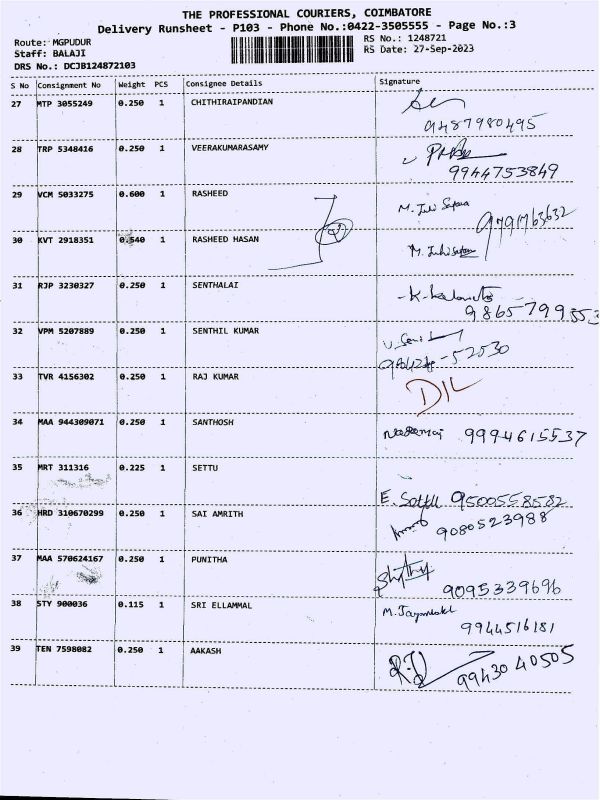 THE PROFESSIONAL COURIERS, COIMBATORE
Delivery Runsheet - P103 - Phone No.:0422-3505555 - Page No.:3
Route: MGPUDUR
RS No.: 1248721
Staff: BALAJI
RS Date: 27-Sep-2023
DRS No.: DCJB124872103
S No Consignment No Weight PCS Consignee Details Signature
27 MTP 3055249 0.250 1 CHITHIRAIPANDIAN
9487980495
28 TRP 5348416 0.250 1 VEERAKUMARASAMY
9944753849
29 VCM 5033275 0.600 1 RASHEED
9791763632
30 KVT 2918351 0.540 1 RASHEED HASAN
31 RJP 3230327 0.250 1 SENTHALAI
9865799553
32 VPM 5207889 0.250 1 SENTHIL KUMAR
52530
33 TVR 4156302 0.250 1 RAJ KUMAR
D/L
34 MAA 944309071 0.250 1 SANTHOSH
9994615537
35 MRT 311316 0.225 1 SETTU
9500558582
36 HRD 310670299 0.250 1 SAI AMRITH
9080523988
37 MAA 570624167 0.250 1 PUNITHA
9095339696
38 STY 900036 0.115 1 SRI ELLAMMAL
9944516181
39 TEN 7598082 0.250 1 AAKASH
9943040505